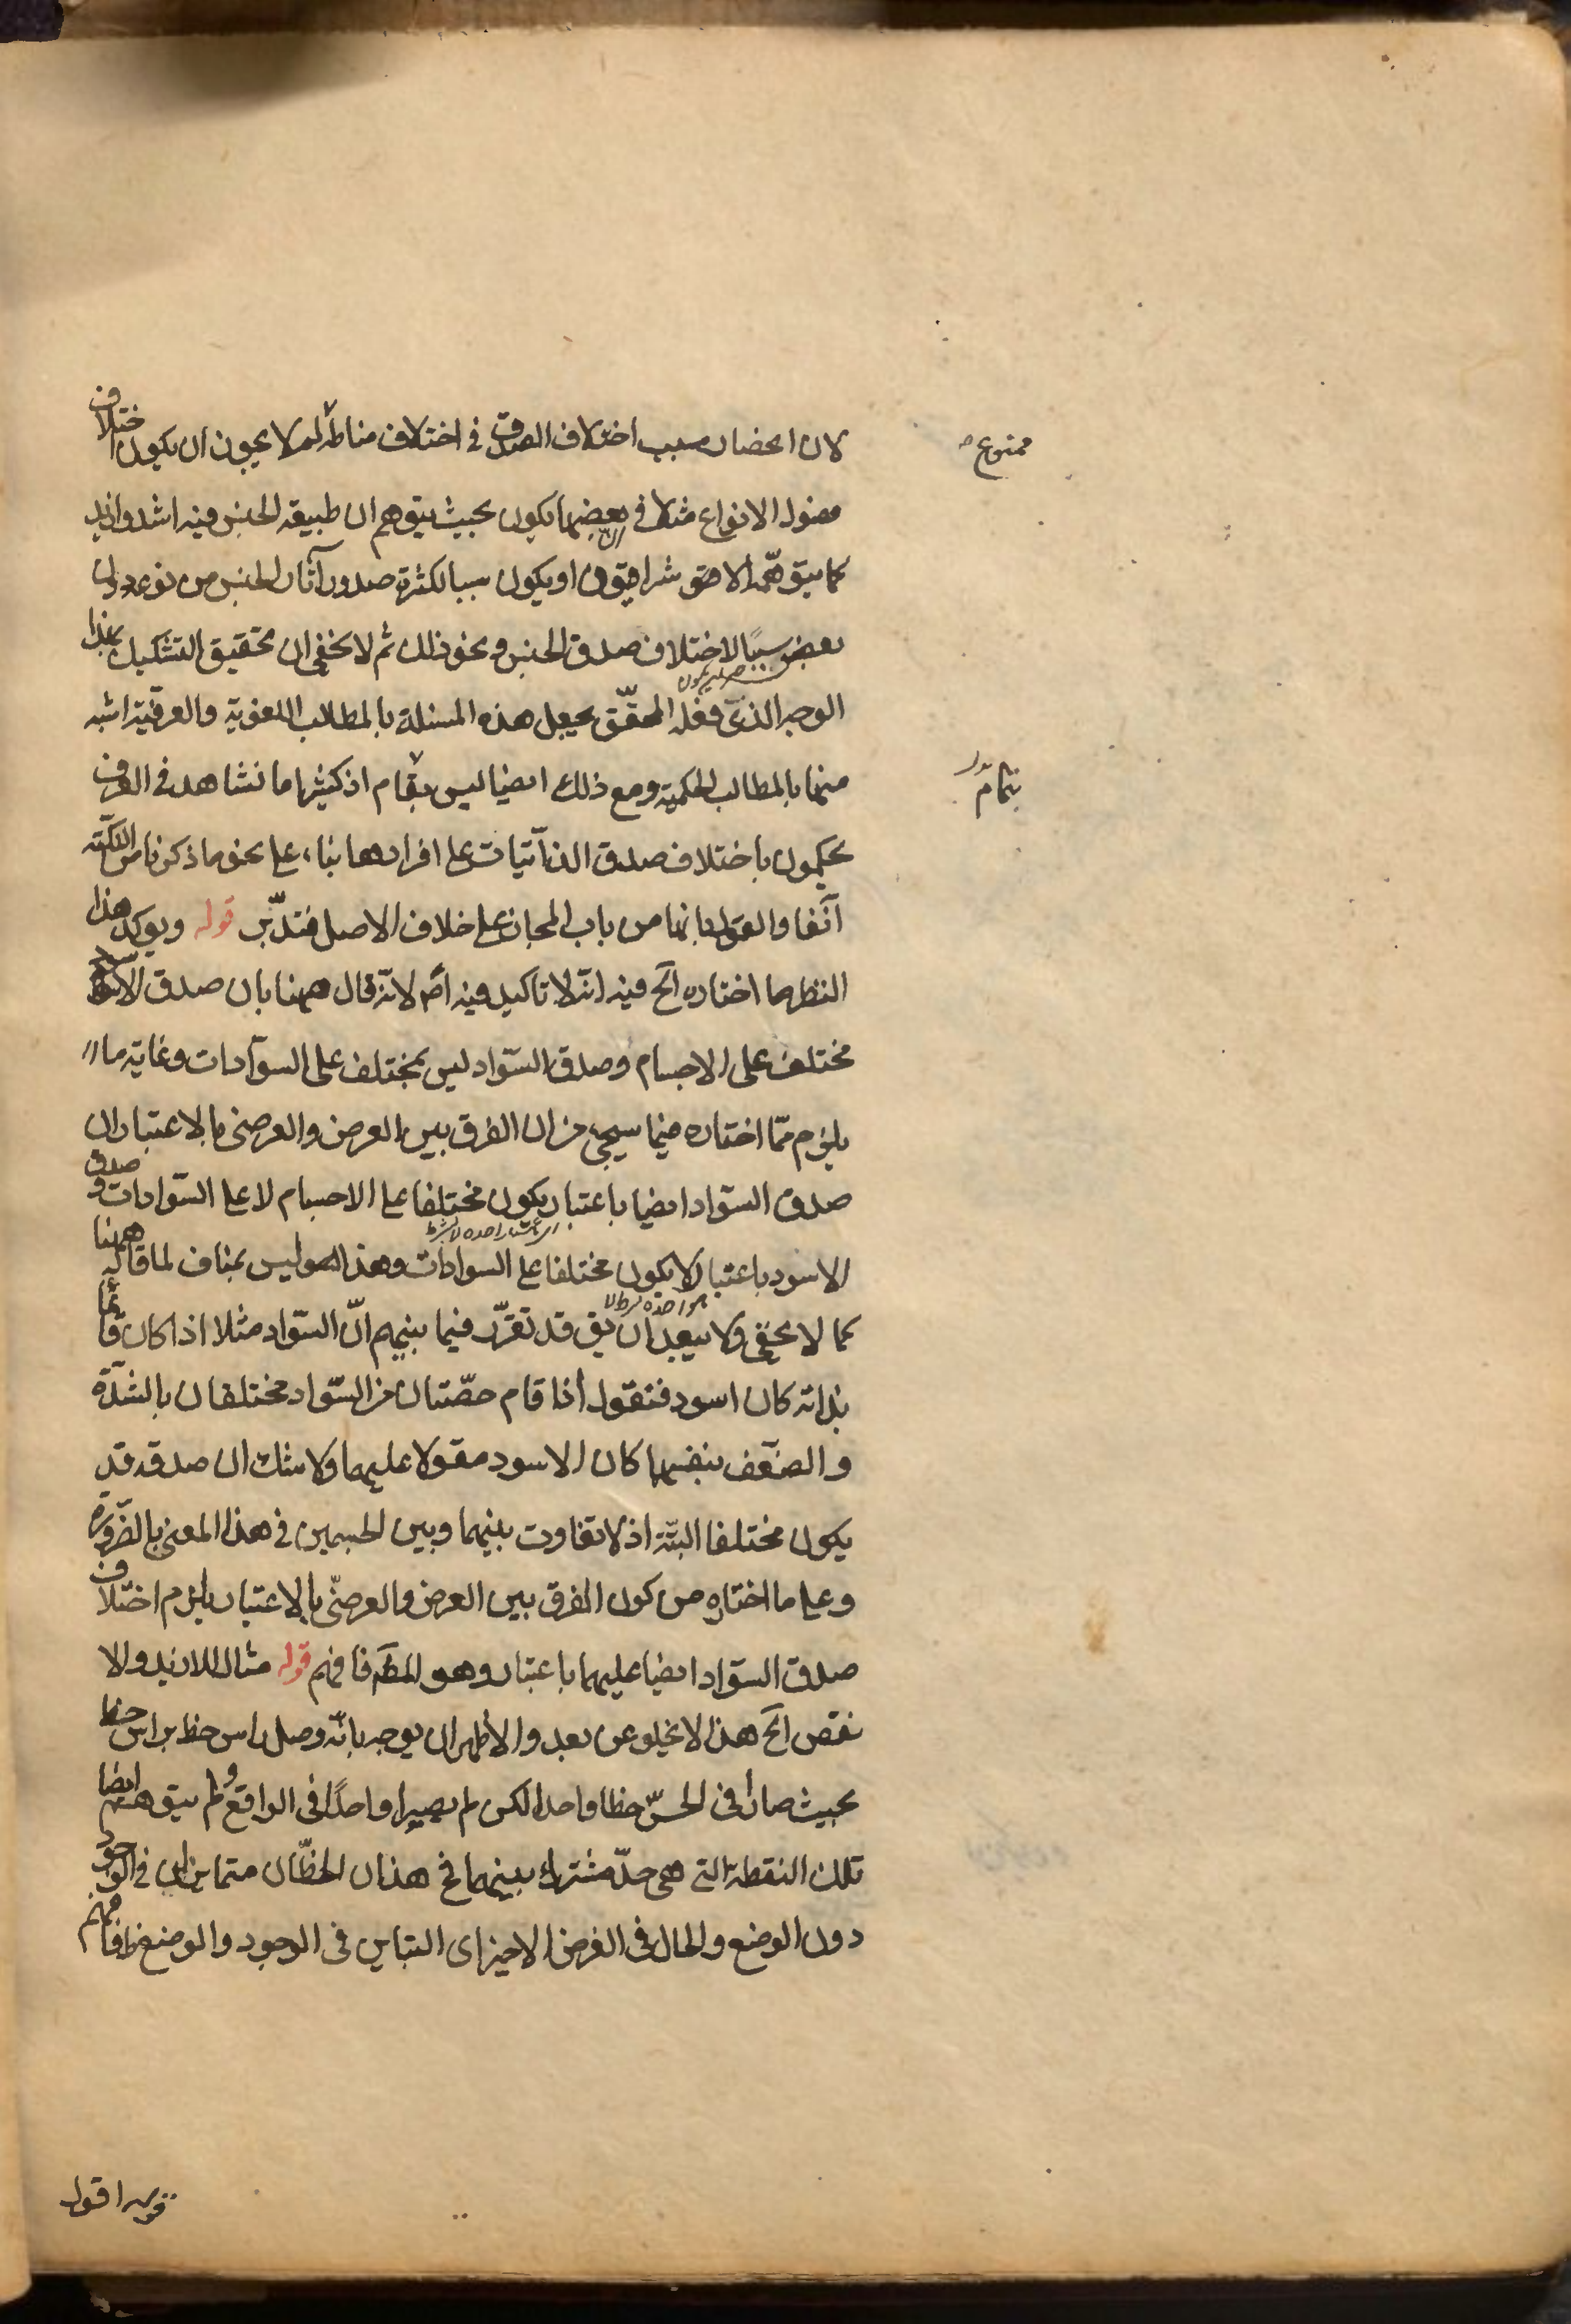 لان انحصار سبب اختلاف الصدق في اختلاف مناطه لم لا يجوز ان يكون اختلاف
ممنوع
فصول الانواع مثلا في بعضها يكون بحيث يتوهم ان طبيعة الجنس فيه اشد وازيد
كما يتوهمه الاشراقيون او يكون سببا لكثرة صدور آثار الجنس من نوع دون
بعض سببًا لاختلاف صدق الجنس ونحو ذلك ثم لا يخفى ان تحقيق التشكيك بهذا
الوجه الذي فعله المحقّق يجعل هذه المسئلة بالمطالب اللغوية والعرفية اشبه
منها بالمطالب الحكمية ومع ذلك ايضا ليس بتمام اذ كثيرا ما نشاهد في العرف
بتمام
يحكمون باختلاف صدق الذاتيات على افرادها بناء على نحو ما ذكرنا من النكتة
آنفا والقول بانها من باب المجاز على خلاف الاصل فتدبّر قوله ويؤكد هذا
النظر ما اختاره آلخ فيه انه لا تاكيد فيه اصم لانه قال ههنا بان صدق الاسود
مختلف على الاجسام وصدق السّواد ليس بمختلف على السوادات وغاية ما
يلزم ممّا اختاره فيما سيجيء من ان الفرق بين العرض والعرضي بالاعتبار ان
صدق السّواد ايضا باعتبار يكون مختلفا على الاجسام لا على السّوادات وصدق
الاسود باعتبار لا يكون مختلفا على السوادات وهذا هو ليس بمناف لما قاله ههنا
كما لا يخفى ولا يبعد ان يق قد تقرّر فيما بينهم انّ السّواد مثلا اذا كان قائما
بذاته كان اسود فنقول اذا قام حصّتان من السّواد مختلفان بالشدّة
والضعف بنفسهما كان الاسود مقولا عليهما ولا شك ان صدقه قد
يكون مختلفا البتّة اذ لا تفاوت بينهما وبين الجسمين في هذا المعنى بالضّرورة
وعلى ما اختاره من كون الفرق بين العرض والعرضيّ بالاعتبار يلزم اختلاف
صدق السّواد ايضا عليهما باعتبار وهو المطّ فافهم قوله مثال للازيد والا
نقص آلخ هذا لا يخلو عن بعد والاظهر ان يوجه بانّه وصل راس خط براس خط
بحيث صارا في الحسّ خطا واحدا لكن لم يصيرا واحدًا في الواقع ولم يتوهم ايضا
تلك النقطة التي هي حدّ مشترك بينهما فح هذان الخطّان متمايزان في الوجود
دون الوضع والحال في الفرض الاخير اي التباين في الوجود والوضع ظ فافهم
قوله اقول